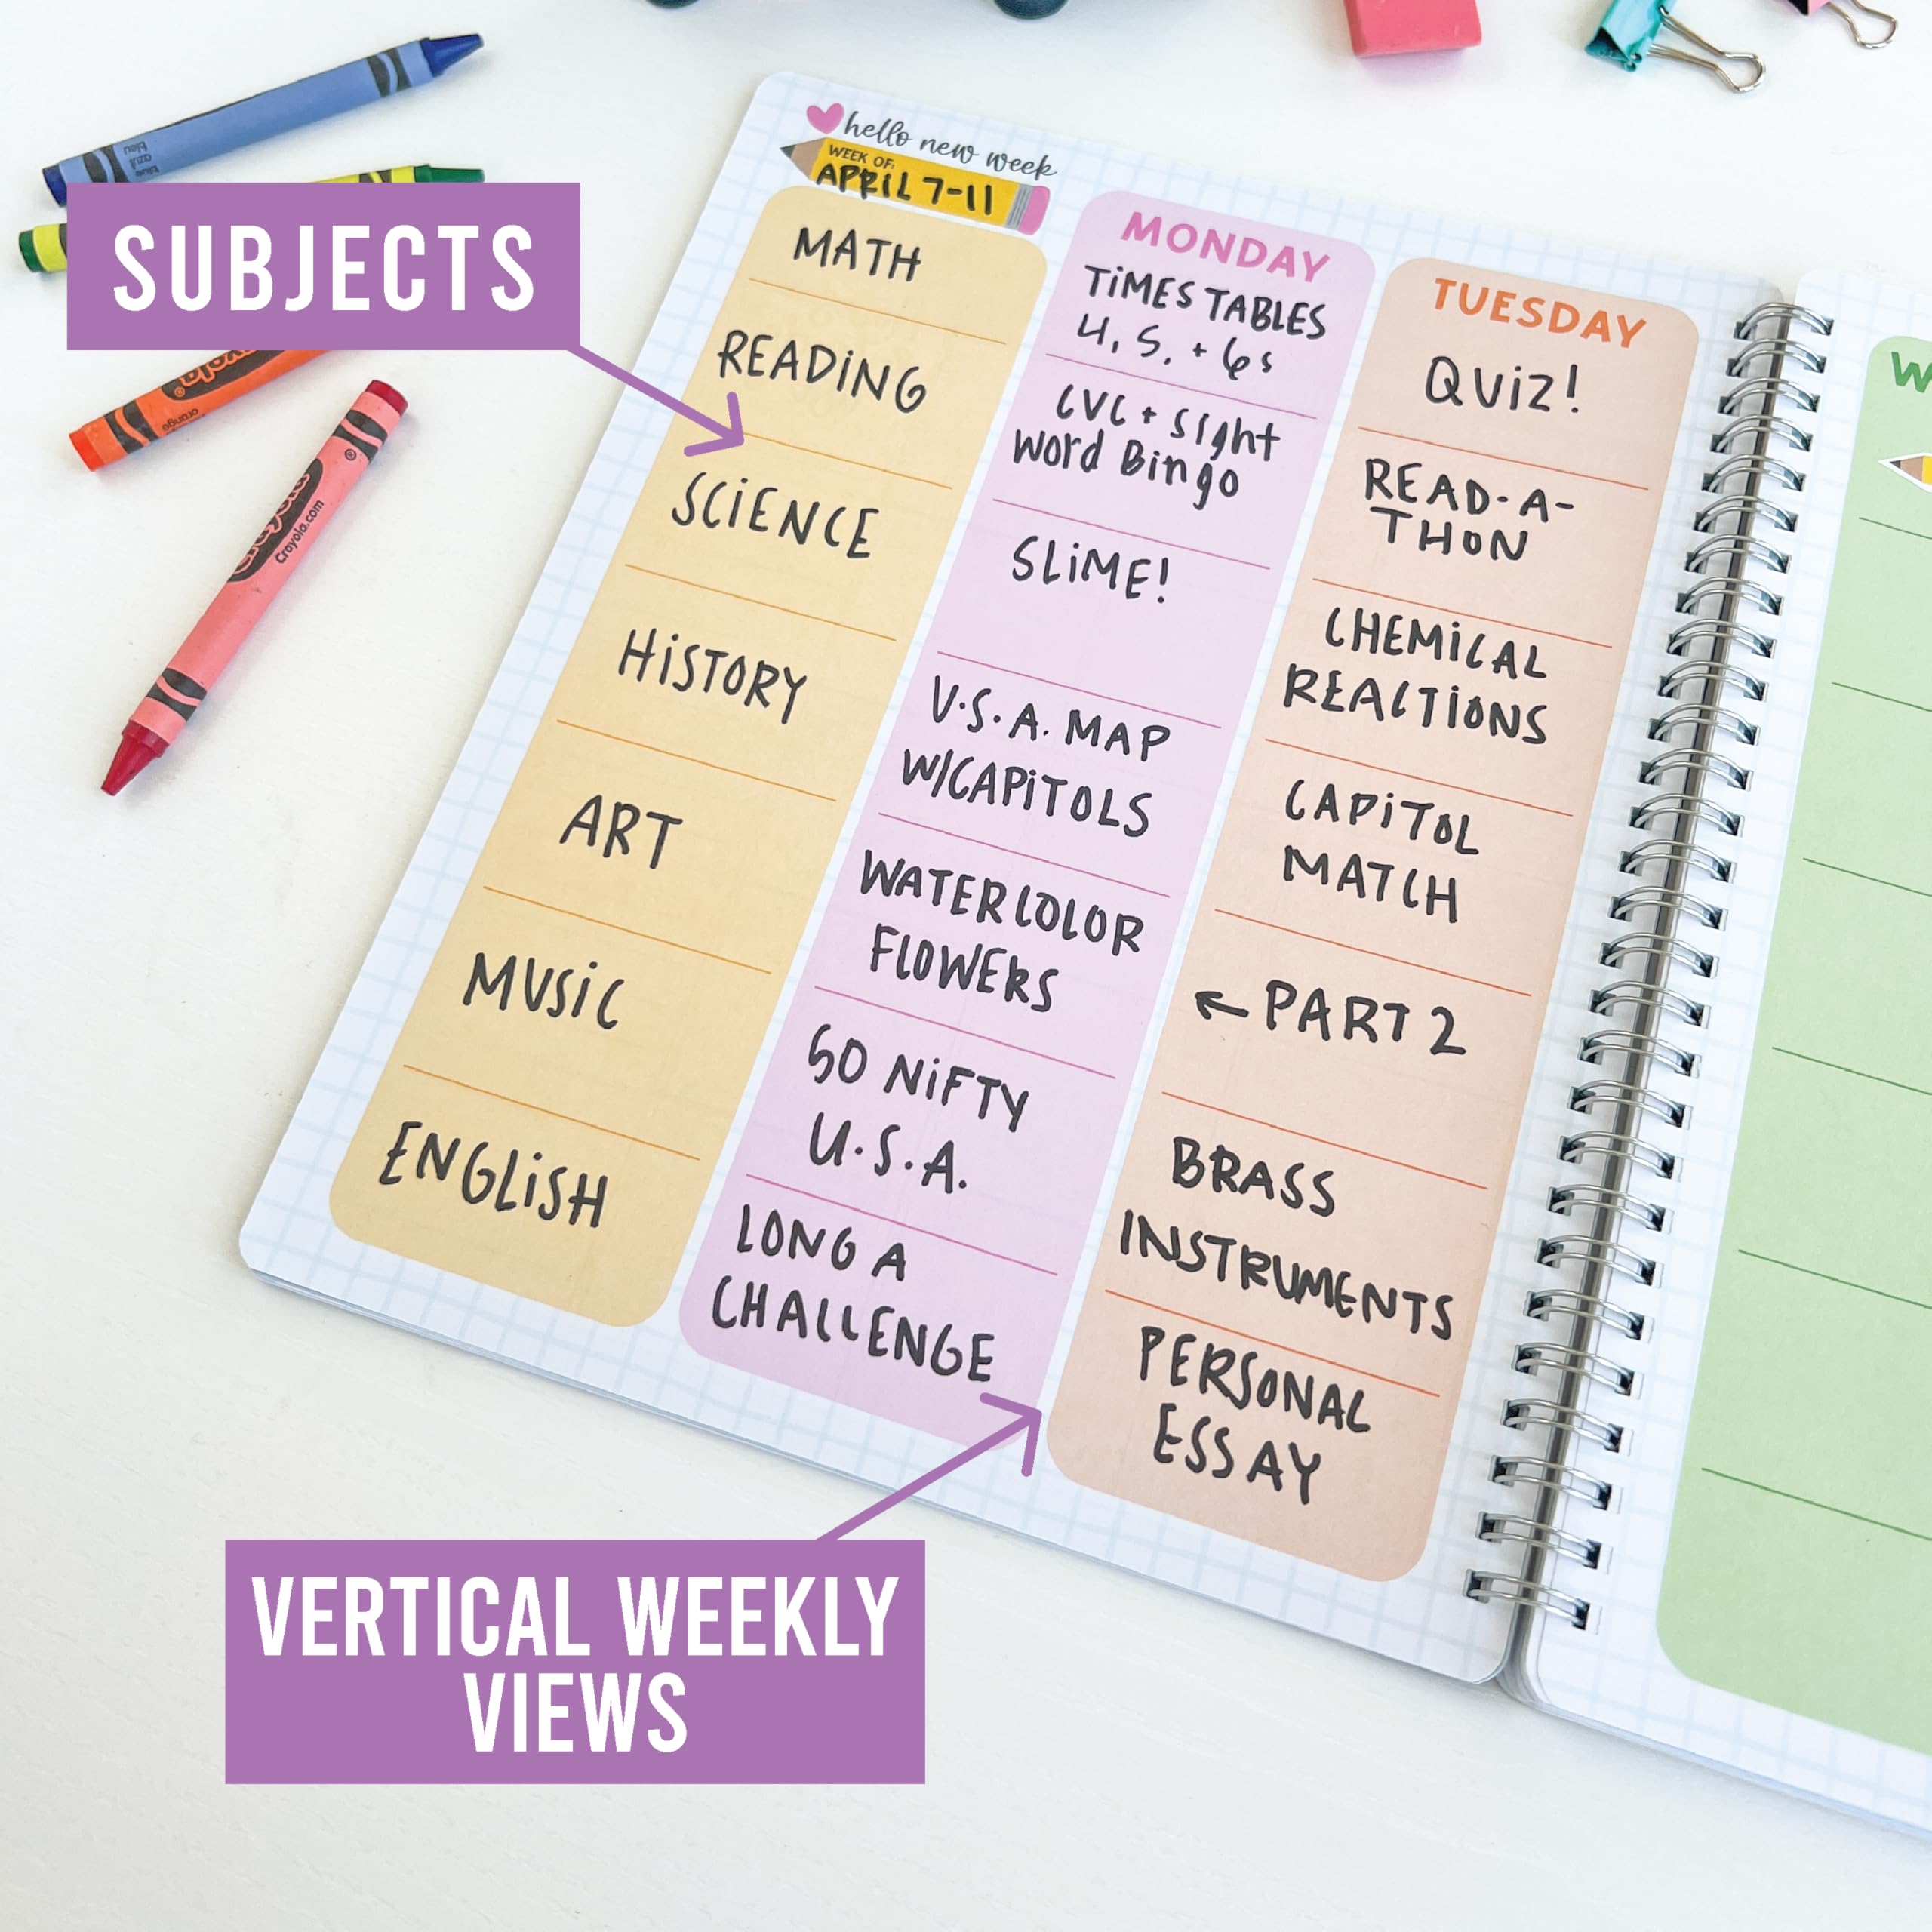 SUBJECTS
VERTICAL WEEKLY
VIEWS
hello new week
WEEK OF:
APRIL 7-11
MATH
READING
SCIENCE
HISTORY
ART
MUSIC
ENGLISH
MONDAY
TIMES TABLES
4, 5, + 6s
CVC + Sight
Word Bingo
SLIME!
U.S.A. MAP
W/CAPITOLS
WATERCOLOR
FLOWERS
50 NIFTY
U.S.A.
LONG A
CHALLENGE
TUESDAY
QUIZ!
READ-A-
THON
CHEMICAL
REACTIONS
CAPITOL
MATCH
← PART 2
BRASS
INSTRUMENTS
PERSONAL
ESSAY
W
blue
azul
bleu
orange
Crayola
Crayola.com